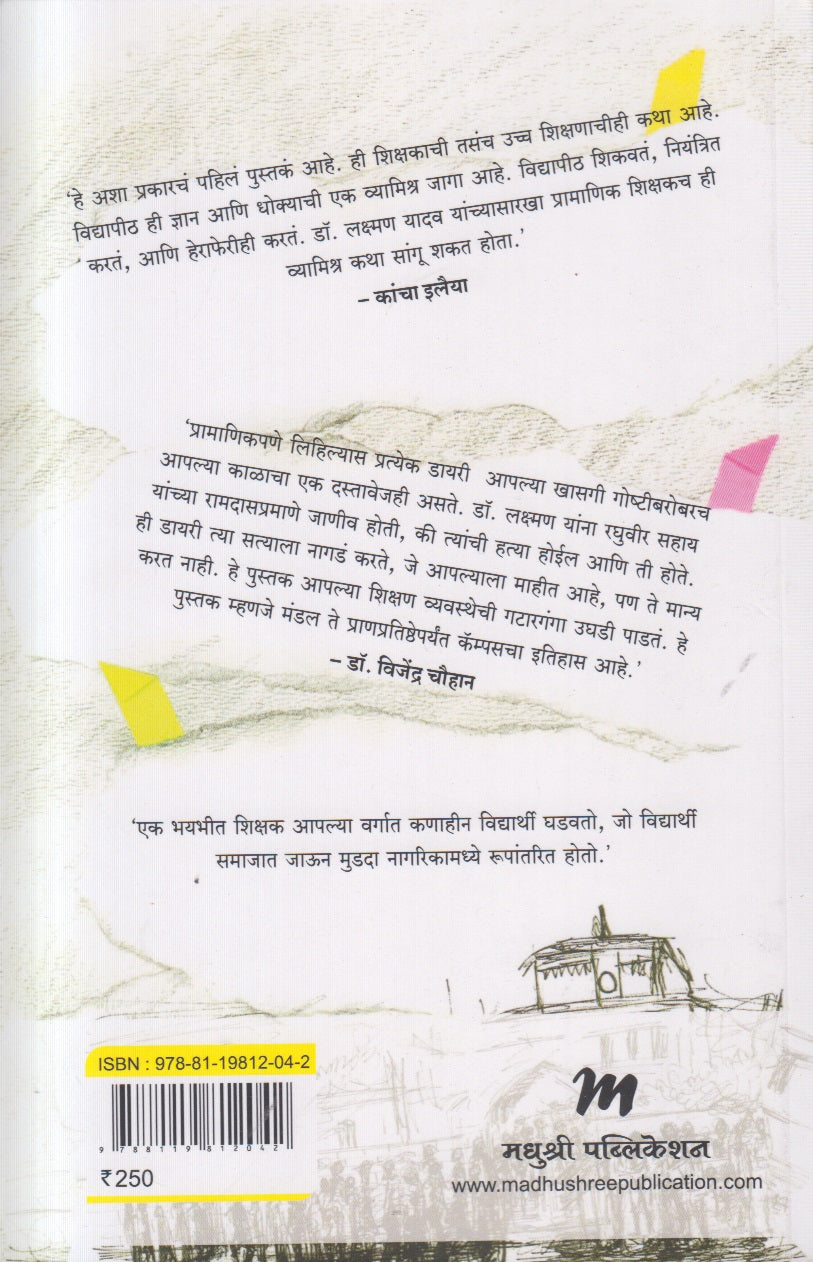 ‘हे अशा प्रकारचं पहिलं पुस्तकं आहे. ही शिक्षकाची तसंच उच्च शिक्षणाचीही कथा आहे.
विद्यापीठ ही ज्ञान आणि धोक्याची एक व्यामिश्र जागा आहे. विद्यापीठ शिकवतं, नियंत्रित
करतं, आणि हेराफेरीही करतं. डॉ. लक्ष्मण यादव यांच्यासारखा प्रामाणिक शिक्षकच ही
व्यामिश्र कथा सांगू शकत होता.’
– कांचा इलैया
‘प्रामाणिकपणे लिहिल्यास प्रत्येक डायरी आपल्या खासगी गोष्टीबरोबरच
आपल्या काळाचा एक दस्तावेजही असते. डॉ. लक्ष्मण यांना रघुवीर सहाय
यांच्या रामदासप्रमाणे जाणीव होती, की त्यांची हत्या होईल आणि ती होते.
ही डायरी त्या सत्याला नागडं करते, जे आपल्याला माहीत आहे, पण ते मान्य
करत नाही. हे पुस्तक आपल्या शिक्षण व्यवस्थेची गटारगंगा उघडी पाडतं. हे
पुस्तक म्हणजे मंडल ते प्राणप्रतिष्ठेपर्यंत कॅम्पसचा इतिहास आहे.’
– डॉ. विजेंद्र चौहान
‘एक भयभीत शिक्षक आपल्या वर्गात कणाहीन विद्यार्थी घडवतो, जो विद्यार्थी
समाजात जाऊन मुडदा नागरिकामध्ये रूपांतरित होतो.’
ISBN : 978-81-19812-04-2
9 788119 812042
₹ 250
m
मधुश्री पब्लिकेशन
www.madhushreepublication.com